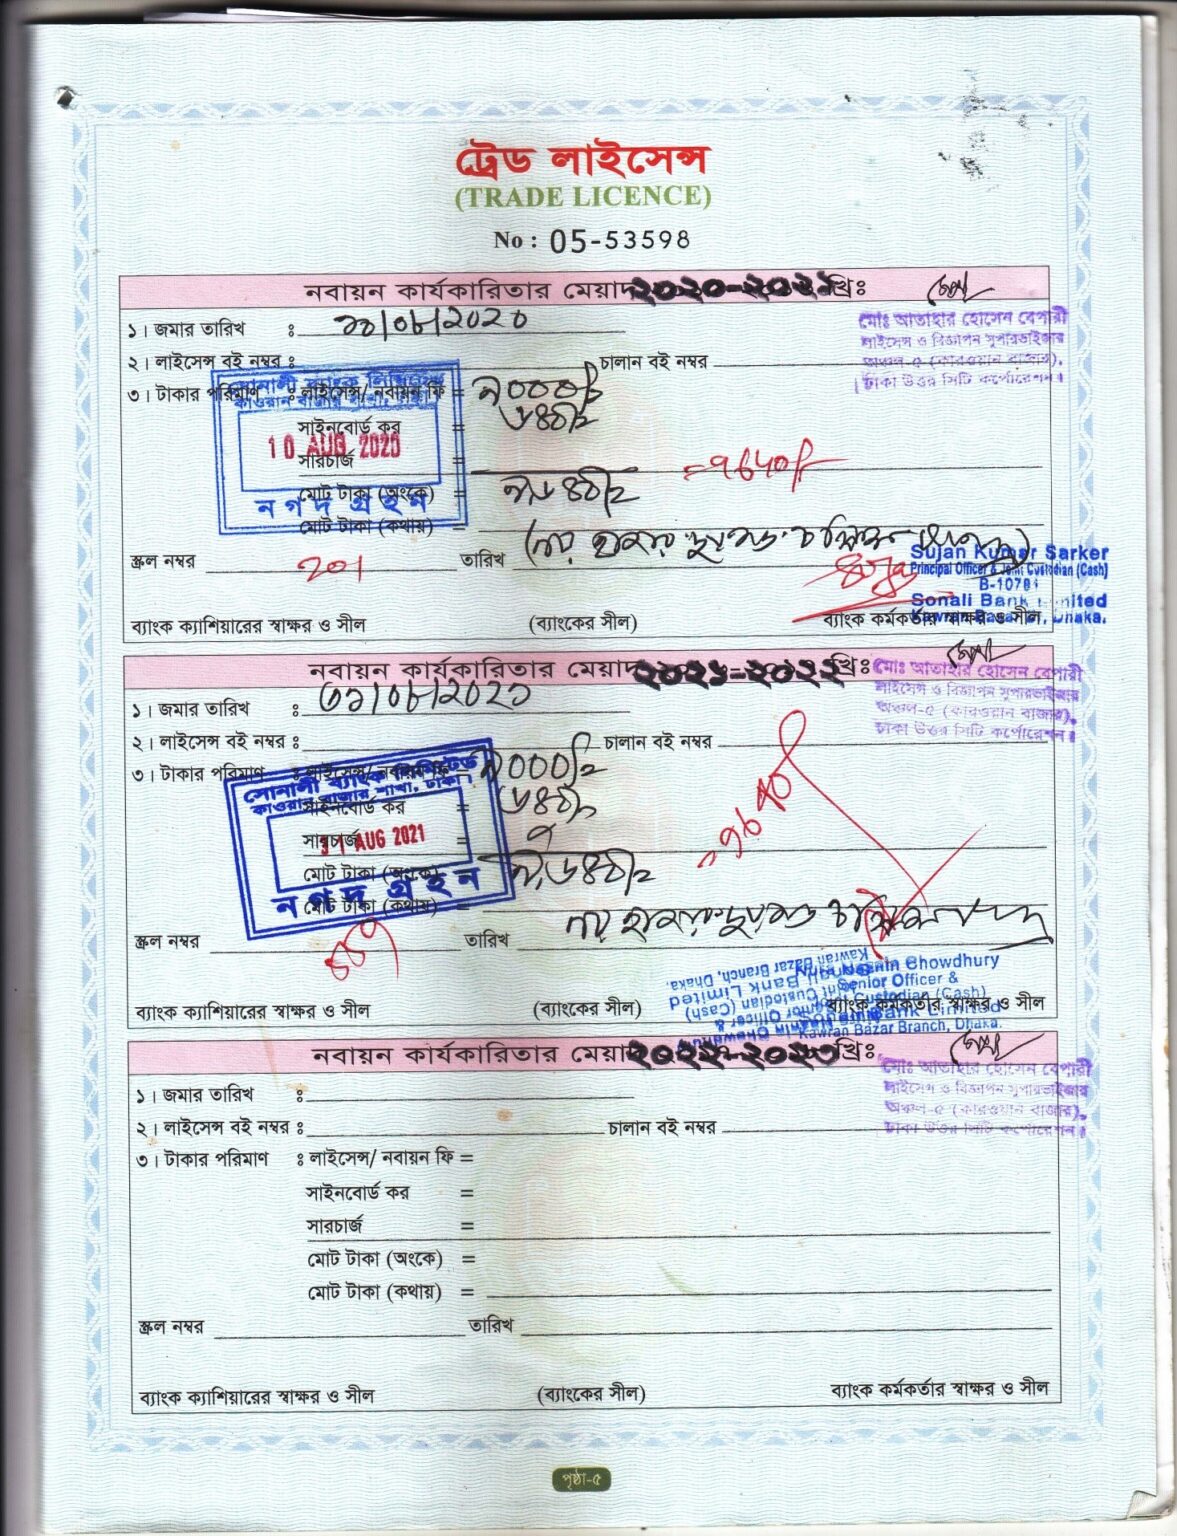 ট্রেড লাইসেন্স
(TRADE LICENCE)
No : 05-53598
নবায়ন কার্যকারিতার মেয়াদ ২০২০-২০২১ খ্রিঃ
মোঃ আতাহার হোসেন বেপারী
লাইসেন্স ও বিজ্ঞাপন সুপারভাইজার
অঞ্চল-৫ (কারওয়ান বাজার),
ঢাকা উত্তর সিটি কর্পোরেশন।
১। জমার তারিখ : ১০/০৮/২০২০
২। লাইসেন্স বই নম্বর : চালান বই নম্বর
৩। টাকার পরিমাণ : লাইসেন্স/ নবায়ন ফি = ৯০০০/=
সাইনবোর্ড কর = ৬৪০/=
সারচার্জ =
মোট টাকা (অংকে) = ৯,৬৪০/=
=9640/-
মোট টাকা (কথায়) =
সোনালী ব্যাংক লিমিটেড
কাওরান বাজার শাখা, ঢাকা।
10 AUG 2020
নগদ গ্রহন
স্ক্রল নম্বর 201 তারিখ
Sujan Kumar Sarker
Principal Officer & Joint Custodian (Cash)
B-10781
Sonali Bank Limited
Kawran Bazar Br, Dhaka.
ব্যাংক ক্যাশিয়ারের স্বাক্ষর ও সীল (ব্যাংকের সীল) ব্যাংক কর্মকর্তার স্বাক্ষর ও সীল
নবায়ন কার্যকারিতার মেয়াদ ২০২১-২০২২ খ্রিঃ
মোঃ আতাহার হোসেন বেপারী
লাইসেন্স ও বিজ্ঞাপন সুপারভাইজার
অঞ্চল-৫ (কারওয়ান বাজার),
ঢাকা উত্তর সিটি কর্পোরেশন।
১। জমার তারিখ : ৩১/০৮/২০২১
২। লাইসেন্স বই নম্বর : চালান বই নম্বর
৩। টাকার পরিমাণ : লাইসেন্স/ নবায়ন ফি = ৯০০০/=
সাইনবোর্ড কর = ৬৪০/=
সারচার্জ =
মোট টাকা (অংকে) = ৯,৬৪০/=
=9640/-
মোট টাকা (কথায়)
সোনালী ব্যাংক লিমিটেড
কাওরান বাজার শাখা, ঢাকা।
31 AUG 2021
নগদ গ্রহন
স্ক্রল নম্বর তারিখ
Chowdhury
Senior Officer &
Joint Custodian (Cash)
Sonali Bank Limited
Kawran Bazar Branch, Dhaka.
ব্যাংক ক্যাশিয়ারের স্বাক্ষর ও সীল (ব্যাংকের সীল) ব্যাংক কর্মকর্তার স্বাক্ষর ও সীল
নবায়ন কার্যকারিতার মেয়াদ ২০২২-২০২৩ খ্রিঃ
মোঃ আতাহার হোসেন বেপারী
লাইসেন্স ও বিজ্ঞাপন সুপারভাইজার
অঞ্চল-৫ (কারওয়ান বাজার),
ঢাকা উত্তর সিটি কর্পোরেশন।
১। জমার তারিখ :
২। লাইসেন্স বই নম্বর : চালান বই নম্বর
৩। টাকার পরিমাণ : লাইসেন্স/ নবায়ন ফি =
সাইনবোর্ড কর =
সারচার্জ =
মোট টাকা (অংকে) =
মোট টাকা (কথায়) =
স্ক্রল নম্বর তারিখ
ব্যাংক ক্যাশিয়ারের স্বাক্ষর ও সীল (ব্যাংকের সীল) ব্যাংক কর্মকর্তার স্বাক্ষর ও সীল
পৃষ্ঠা-৫